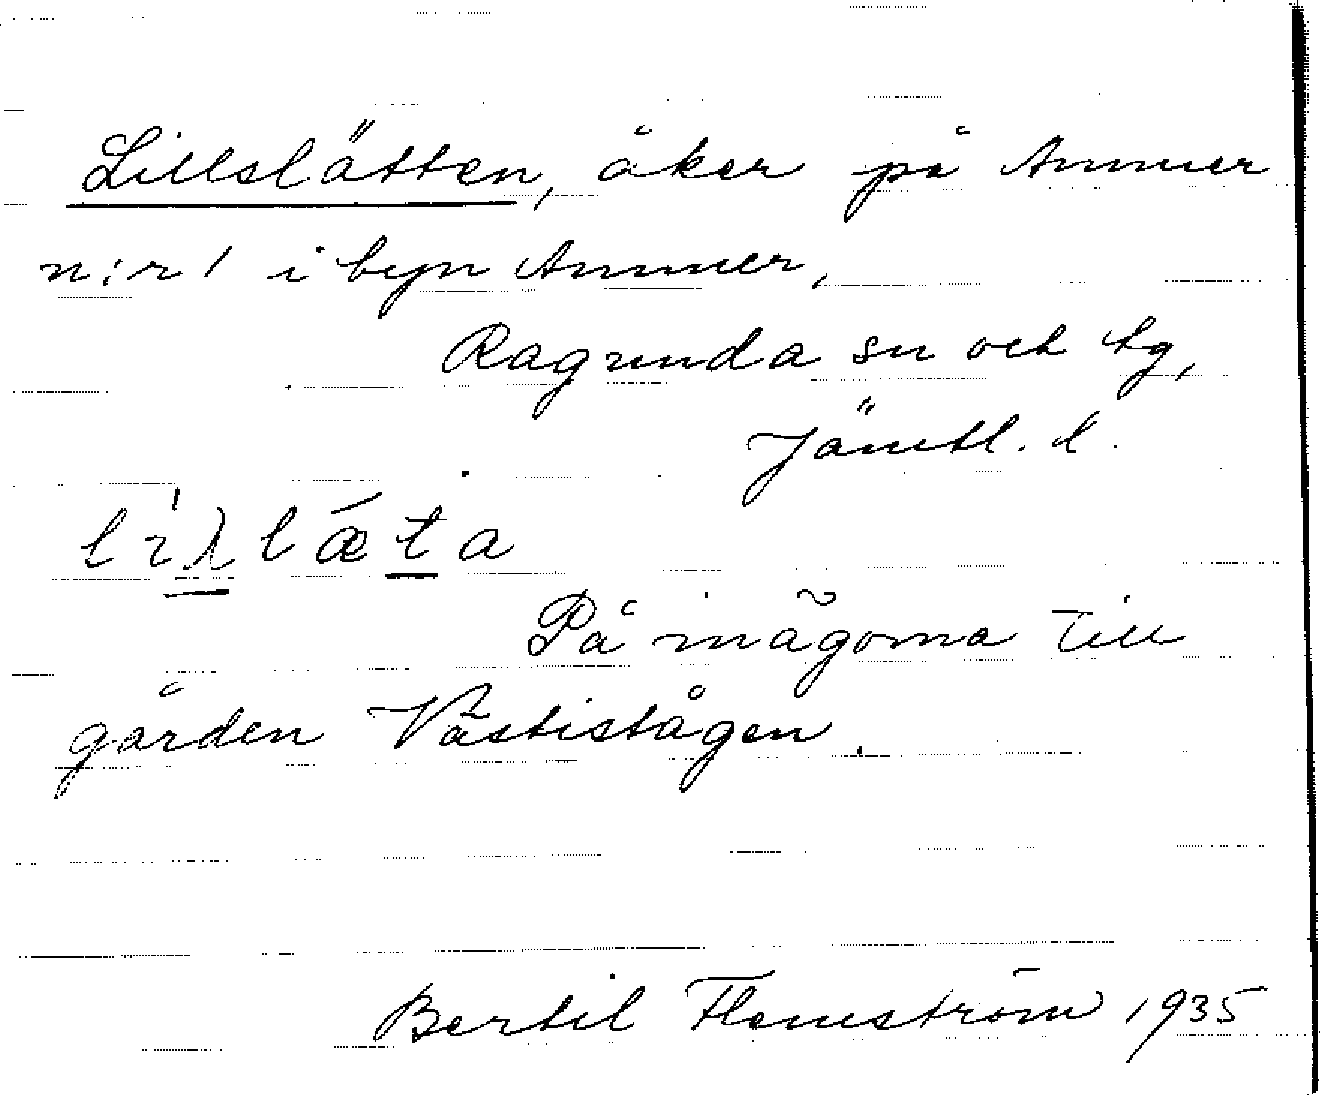 Lillslätten, åker på Ammer
n:r 1 i byn Ammer,
Ragunda sn och tg,
Jämtl. l.
På inägorna till
gården Västistågen.
Bertil Flemström 1935